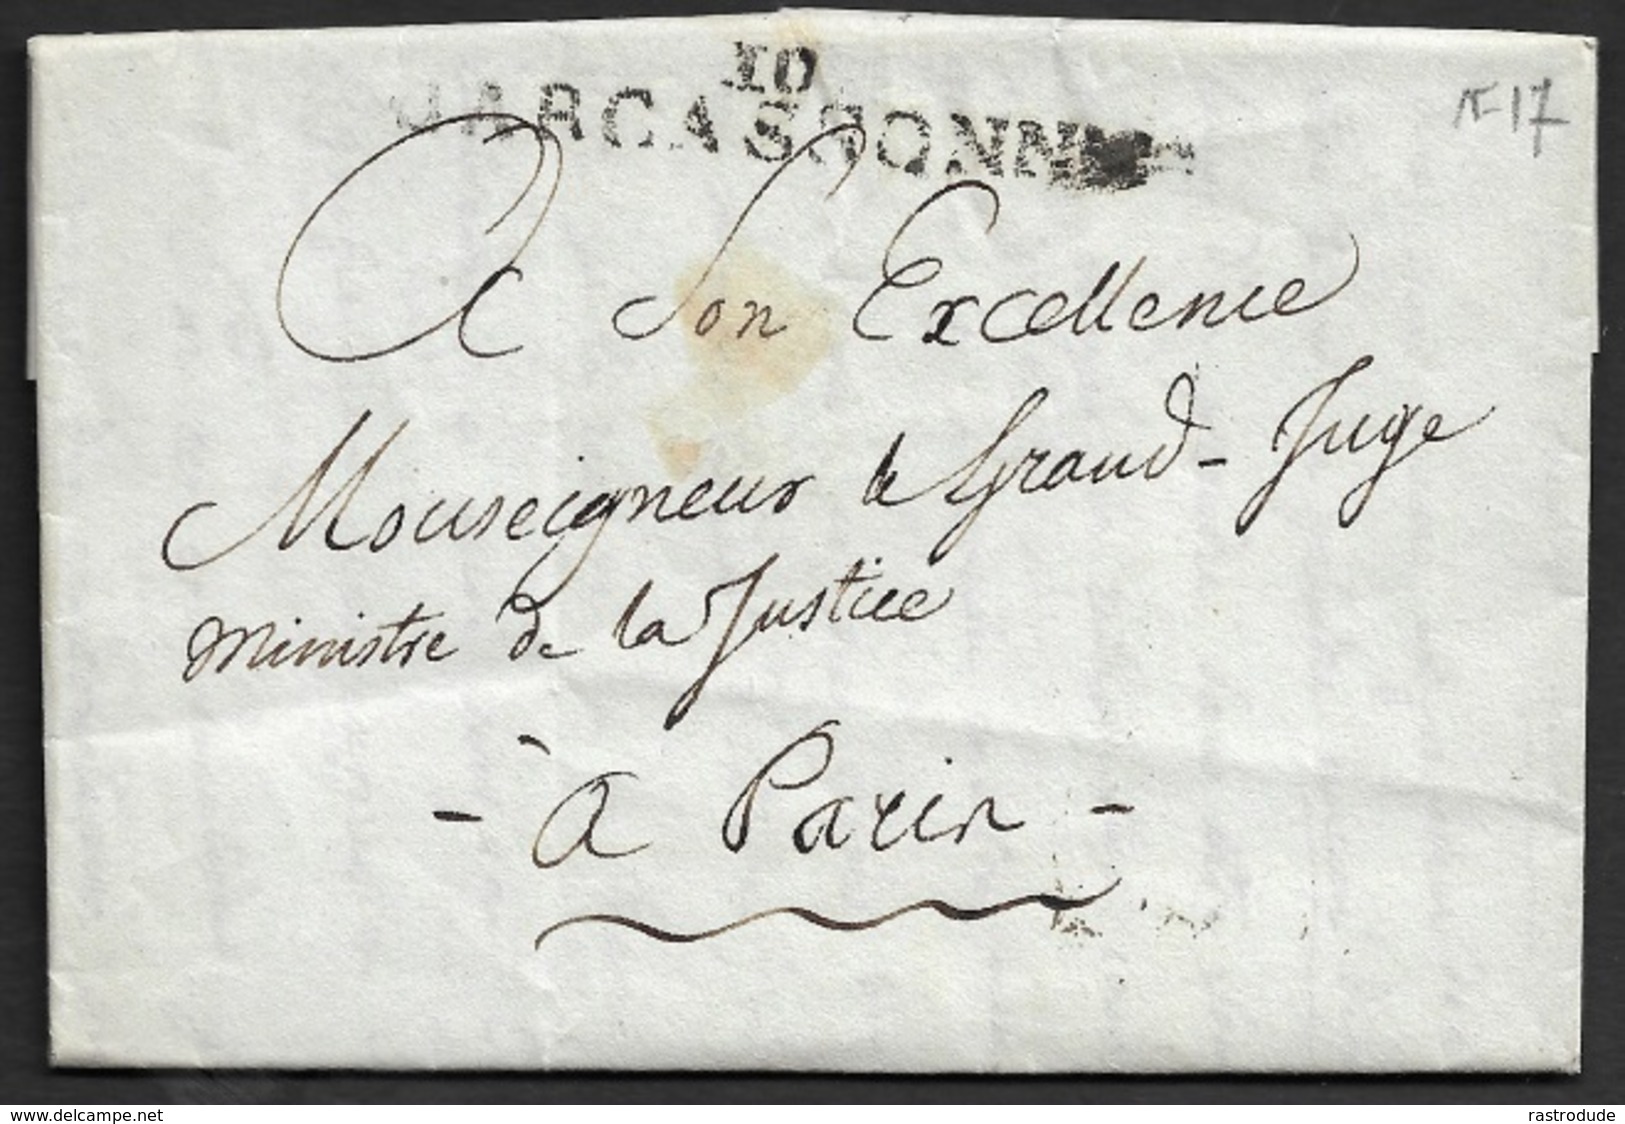 10
CARCASSONNE
N-17
A Son Excellence
Monseigneur le Grand-Juge
Ministre de la Justice
- à Paris -
www.delcampe.net
rastrodude